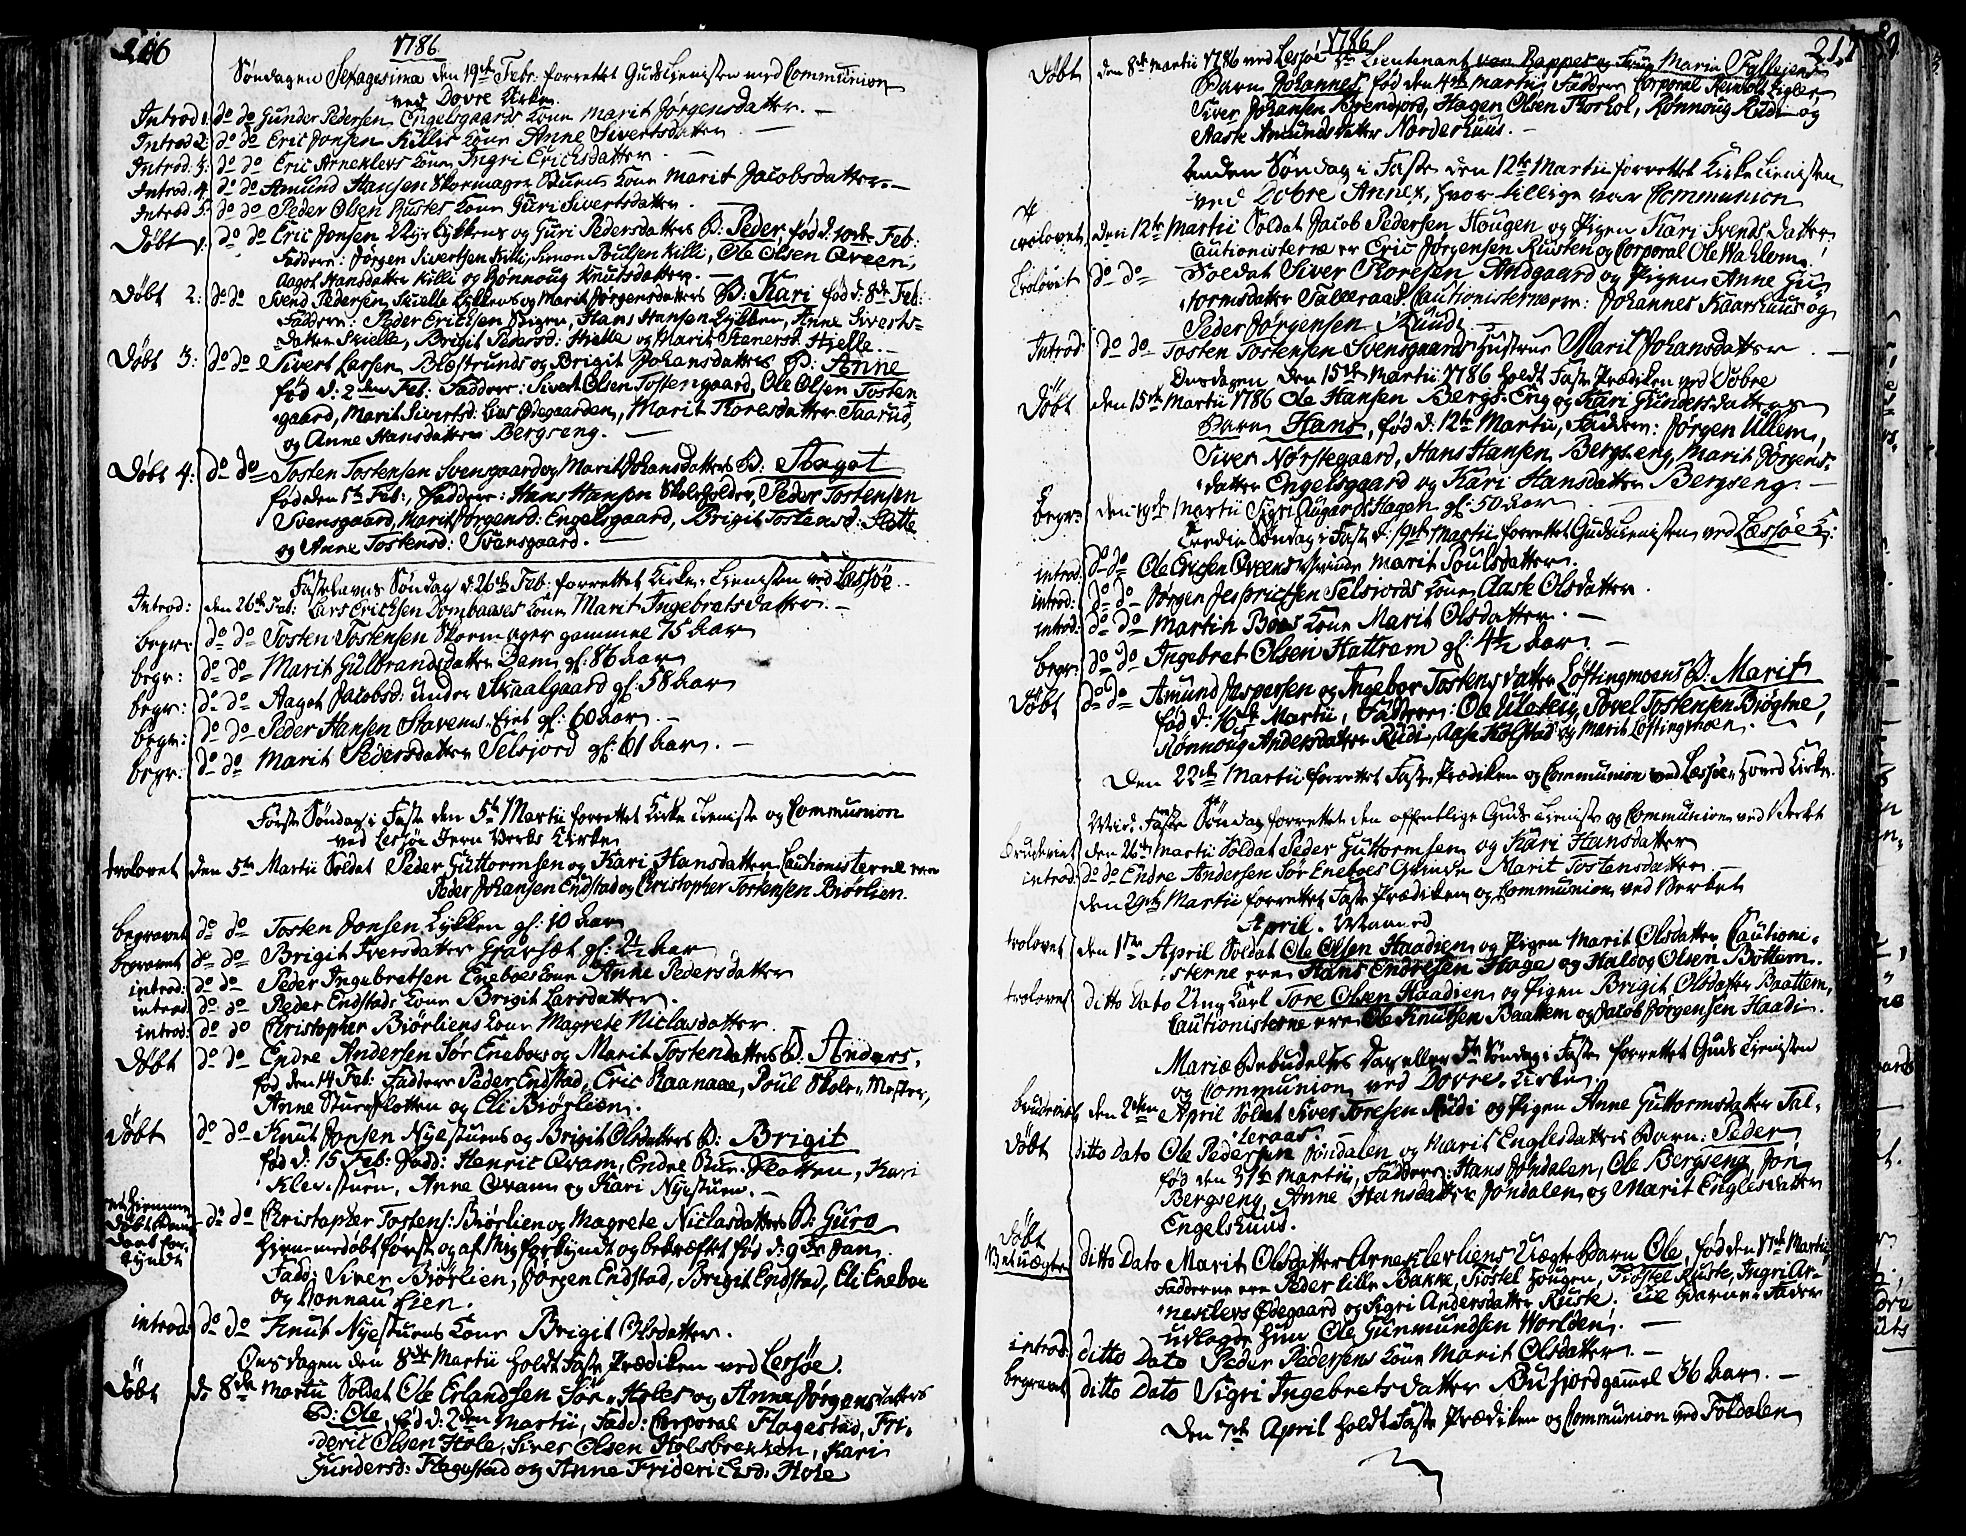 216
1786
Søndagen Sexagesima den 19de Febr: forrettet Gudstienisten med Communion
ved Dovre Kirke.
Introd 1: do do Gunder Pedersen Engelsgaards Kone Marit Jørgensdatter. —
Introd 2: do do Eric Jonsen Killis Kone Anne Sivertsdatter —
Introd: 3: do do Eric Arneklevs Kone Ingri Erichsdatter. —
Introd: 4: do do Amund Hansen Skormager Kone Marit Jacobsdatter. —
Introd 5: do do Peder Olsen Rustes Kone Guri Sivertsdatter.
Døbt 1: do do Eric Jonsen Lykkens og Guri Pedersdatters B: Peder, fød d: 10de Feb:
Faddere: Jørgen Sivertsen Killi, Simon Poulsen Killi, Ole Olsen Qveen,
Aagot Hansdatter Killi og Rønnoug Knutsdatter. —
Døbt 2: do do Svend Pedersen Skielle Lykkens og Marit Jørgensdatters B: Kari fød d: 8de Feb:
Faddere: Peder Erichsen, Hans Hansen Lykken, Anne Siverts-
datter Skielle, Brigit Pedersd: Hielle og Marit Stenersd: Hielle. —
Døbt 3: do do Sivert Larsen Blestrunds og Brigit Johansdatters B: Anne
fød d: 2den Feb: Faddere: Sivert Olsen Tostengaard, Ole Olsen Tosten
gaard, Marit Sivertsd: Ødegaarden, Marit Toresdatter Taarud,
og Anne Hansdatter Bergseng. —
Døbt 4: do do Tosten Tostensen Svensgaard og Marit Johansdatters B: Aagot
fød den 5te Feb:, Faddere: Hans Hansen Skoleholder, Peder Tostensen
Svensgaard, Marit Jørgensd: Engelsgaard, Brigit Tostensd: Slette
og Anne Tostensd: Svensgaard. —
Fastelavns Søndag d: 26de Feb: forrettet Kirke-Tienisten ved Lessøe.
Introd: den 26de Feb: Lars Erichsen Dombaases Kone Marit Ingebretsdatter. —
begr: do do Tosten Tostensen Skormager gammel 75 Aar
begr: do do Marit Gulbrandsdatter Dem gl: 86 Aar
begr: do do Aagot Jacobsd: under Skaalgaard gl: 58 Aar
begr: do do Peder Hansen Stavems-Eiet gl: 60 Aar. —
begr: do do Marit Pedersdatter Selsjord gl: 61 Aar. —
Første Søndag i Faste den 5te Martii forrettet Kirke-tieniste og Communion
ved Lessøe Jern Verks Kirke
trolovet den 5te Martii Soldat Peder Guttormsen og Kari Hansdatter, Cautionisterne ere
Peder Johansen Endstad og Christopher Tostensen Biørlien.
begravet do do Tosten Jonsen Lykken gl: 10 Aar
begravet do do Brigit Iversdatter gl: 2½ Aar
introd: do do Peder Ingebretsen Eneboes Kone Anne Pedersdatter
introd: do do Peder Endstads Kone Brigit Larsdatter.
introd: do do Christopher Biørliens Kone Magrete Niclasdatter.
Døbt do do Endre Andersen Sør Eneboes og Marit Tostendatters B: Anders,
fød den 14 Feb: Faddere Peder Endstad, Eric Raanaae, Poul Skole-Mester,
Anne Stueflotten og Eli Biørlien.
Døbt do do Knut Jonsen Nyestuens og Brigit Olsdatters B: Brigit
fød d: 15 Feb: Fadd: Henric Qvam, Endre Stue-Flotten, Kari
Klev-stuen, Anne Qvam og Kari Nyestuen. —
et hiemme
døbt Barns
Daab for-
kyndt do do Christopher Tostens: Biørlien og Magrete Niclasdatters B: Guro
hiemmedøbt først og af Mig forkyndt og bekræftet fød d: 9de Jan.
Fadd: Siver Biørlien, Jørgen Endstad, Brigit Endstad, Eli Eneboe
og Lien.
introd: do do Knut Nyestuens Kone Brigit Olsdatter.
Onsdagen den 8de Martii holdt Faste Prædiken ved Lessøe.
Døbt d: 8de Martii Soldat Ole Erlandsen Sør-Holes og Anne Jørgensdatters
B: Ole, fød d: 2den Martii, Fadd: Corporal Flagestad, Fri-
deric Olsen Hole, Siver Olsen Holsbrekken, Kari
Gundersd: Flagestad og Anne Fridericksd: Hole
1786
217
Døbt den 8de Martii 1786 ved Lessøe Lieutenant von Kappes og Frue Maria
Barn Johannes fød den 4de Martii Faddere Corporal Reinholt Zigler,
Siver Johansen, Hagen Olsen Thorhol, Rønnoug Rudi og
Aaste Amundsdatter Norderhuus. —
Anden Søndag i Faste den 12te Martii forrettet Kirke tienisten
ved Dovre Annex, hvor tillige var Communion
trolovet den 12te Martii Soldat Jacob Pedersen Hougen og Pigen Kari Svendsdatter
Cautionisterne er Eric Jørgensen Rusten og Corporal Ole Wahlom.
trolovit do do Soldat Siver Thoresen Andgaard og Pigen Anne Gu-
tormsdatter Talleraas Cautionisterne ere: Johannes Kaarhuus og
Peder Jørgensen Rundi
Introd: do do Tosten Tostensen Svensgaards Hustrue Marit Johansdatter. —
Onsdagen den 15de Martii 1786 holdt Faste Prædiken ved Dovre
Døbt den 15de Martii 1786 Ole Hansen Bergs-Eng og Kari Gundersdatters
Barn Hans, fød d: 12te Martii, Faddere: Jørgen Ullem,
Siver Nørstegaard, Hans Hansen Bergseng, Marit Jørgens-
datter Engelsgaard og Kari Hansdatter Bergseng. —
begr: den 19de Martii Sigri Hagen gl: 50 Aar
Tredie Søndag i Faste d: 19de Martii forrettet Gudstienisten ved Læssøe K:
introd: do do Ole Ericsen Qveens Qvinde Marit Poulsdatter.
introd: do do Jørgen Selsjords Kone Aaste Olsdatter.
introd: do do Martin Boes Kone Marit Olsdatter. —
begr: do do Ingebret Olsen Hattrem gl: 4½ Aar. —
Døbt do do Amund Jespersen og Ingebor Tostensdatter Løftingmoens B: Marit
fød d: 16de Martii, Faddere: Ole Ulekleiv, Povel Tostensen Biøgtne,
Rønnoug Andersdatter Rudi, Aase Kolstad og Marit Løftingmoen.
Den 22de Martii forrettet Faste Prædiken og Communion ved Læssøe, Hoved Kirke.
Mid-Faste Søndag forrettet den offentlige Guds tieniste og Communion ved Verket
brudeviet den 26de Martii Soldat Peder Guttormsen og Kari Hansdatter
introd: do do Endre Andersen Sør Eneboes Qvinde Marit Tostensdatter —
den 29de Martii forrettet Faste Prædiken og Communion ved Verket
April-Maaned
trolovet den 1ste April Soldat Ole Olsen Haadien og Pigen Marit Olsdatter, Cautioni-
sterne ere Hans Endresen Hage og Haldog Olsen Bottem.
trolovet ditto Dato Ung Karl Tore Olsen Haadien og Pigen Brigit Olsdatter Baattem,
Cautionisterne ere Ole Knutsen Baattem og Jacob Jørgensen Haadi.
Mariæ Bebudelses Dag eller 5te Søndag i Faste forrettet Guds tienisten
og Communion ved Dovre-Kirke
brudeviet den 2den April Soldat Siver Toresen Rudi og Pigen Anne Guttormsdatter Tal-
leraas.
Døbt ditto Dato Ole Pedersen Jøndalen og Marit Englesdatters Barn: Peder
fød den 31te Martii, Faddere: Hans Jøndalen, Ole Bergseng, Jon
Bergseng, Anne Hansdatter Jøndalen og Marit Englesdatter
Engelshuus.
Døbt
Bet: uægte ditto Dato Marit Olsdatter Arneklevliens Uægte Barn Ole, fød den 17de Martii,
Fadderne ere Peder Lille Bakke, Siøstel Hougen, Kiøstel Ruste, Ingri Ar-
neklevs Ødegaard og Sigri Andersdatter Ruste; til Barne-Fader
udlagde hun Ole Gunmundsen Worlden. —
introd: ditto Dato Peder Pedersens Kone Marit Olsdatter. —
begravet ditto Dato Sigri Ingebretsdatter Busjord gammel 36 Aar. —
Den 7de April holdt Faste Prædiken og Communion ved Foldalen